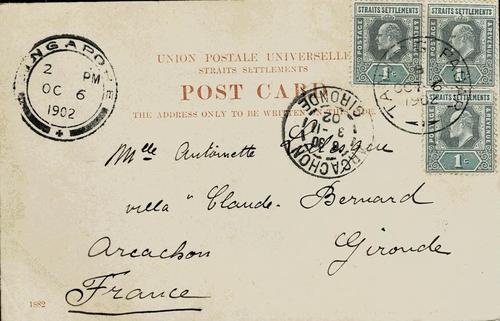 UNION POSTALE UNIVERSELLE
STRAITS SETTLEMENTS
POST CARD
THE ADDRESS ONLY TO BE WRITTEN
SINGAPORE
2 PM
OC 6
1902
STRAITS SETTLEMENTS
POSTAGE
REVENUE
1c
STRAITS SETTLEMENTS
POSTAGE
REVENUE
1c
STRAITS SETTLEMENTS
POSTAGE
REVENUE
1c
OCT 6
1902
ARCACHON
GIRONDE
02
Mlle Antoinette
villa "Claude Bernard
Arcachon Gironde
France
1882